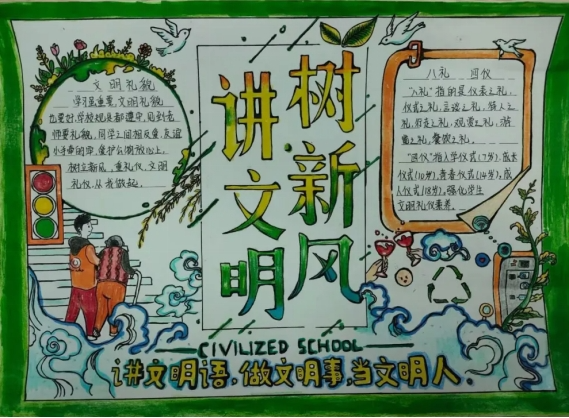 讲文明
树新风
文明礼貌
学习虽重要,文明礼貌
也要好,学校规矩都遵守,见到老
师要礼貌,同学之间相友爱,友谊
小手牵的牢,爱护公物放心上。
树立新风,重礼仪,文明
礼仪,从我做起。
八礼 四仪
"八礼"指的是仪表之礼,
仪式之礼,言谈之礼,待人之
礼,行走之礼,观赏之礼,游
览之礼,餐饮之礼。
"四仪"指入学仪式(7岁),成长
仪式(10岁),青春仪式(14岁),成
人仪式(18岁),强化学生
文明礼仪素养。
CIVILIZED SCHOOL
讲文明语,做文明事,当文明人。